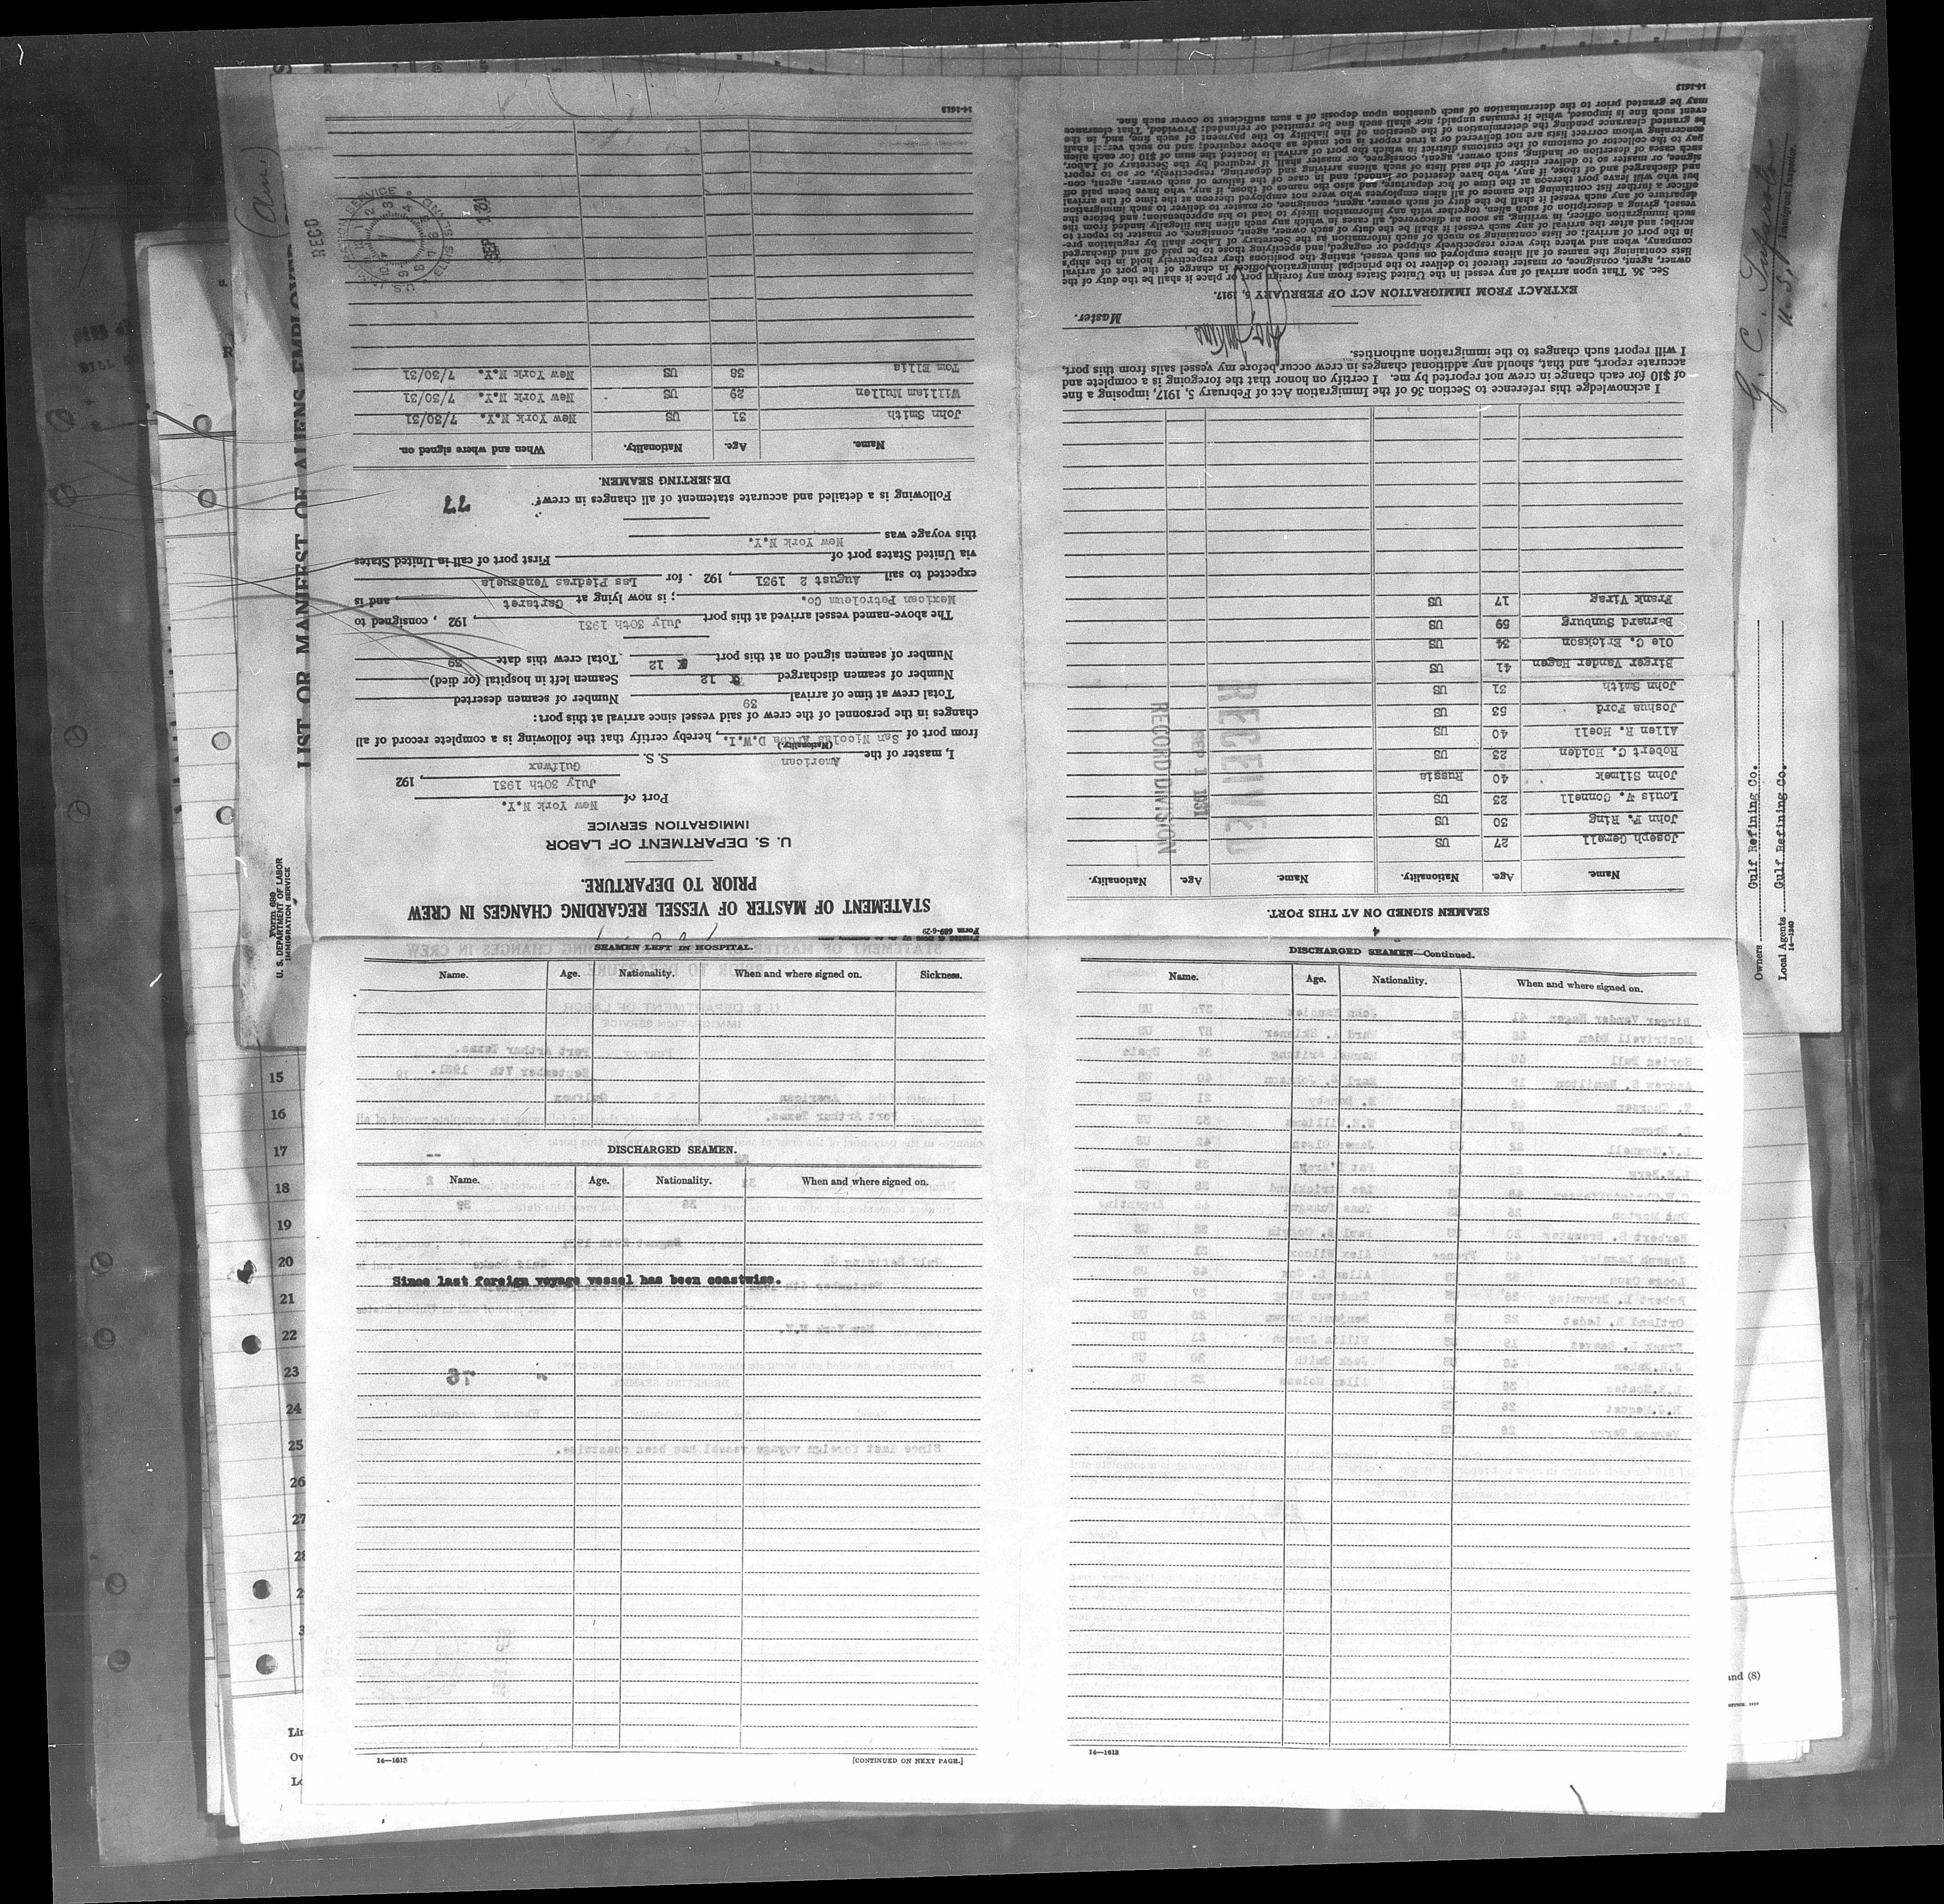 Form 689
STATEMENT OF MASTER OF VESSEL REGARDING CHANGES IN CREW
PRIOR TO DEPARTURE.
U. S. DEPARTMENT OF LABOR
IMMIGRATION SERVICE
Port of New York N.Y.
July 30th 1931, 192
I, master of the American S. S. Gulfwax
(Nationality.)
from port of San Nicolas Aruba D.W.I., hereby certify that the following is a complete record of all
changes in the personnel of the crew of said vessel since arrival at this port:
Total crew at time of arrival 39 Number of seamen deserted
Number of seamen discharged 12 Seamen left in hospital (or died)
Number of seamen signed on at this port 12 Total crew this date 39
The above-named vessel arrived at this port July 30th 1931, 192 , consigned to
Mexican Petroleum Co. ; is now lying at Cartaret, and is
expected to sail August 2 1931, 192 . for Las Piedras Venezuela
via United States port of First port of call in United States
this voyage was New York N.Y.
Following is a detailed and accurate statement of all changes in crew:
77
DESERTING SEAMEN.
Name. Age. Nationality. When and where signed on.
John Smith 31 US New York N.Y. 7/30/31
William Mullen 29 US New York N.Y. 7/30/31
Tom Ellis 38 US New York N.Y. 7/30/31
RECD
U.S. IMMIGRATION SERVICE
ELLIS ISLAND
SEP 1 31
14-1613
4
SEAMEN SIGNED ON AT THIS PORT.
Name. Age. Nationality. Name. Age. Nationality.
Joseph Gewell 27 US
John F. Ring 30 US
Louis V. Connell 23 US
John Slimek 40 Russia
Robert C. Holden 23 US
Allen R. Hoell 40 US
Joshua Ford 53 US
John Smith 31 US
Birger Vander Hagen 41 US
Ole C. Erickson 34 US
Bernard Sunburg 59 US
Frank Virag 17 US
RECEIVED
SEP 1 1931
RECORD DIVISION
I acknowledge this reference to Section 36 of the Immigration Act of February 5, 1917, imposing a fine
of $10 for each change in crew not reported by me. I certify on honor that the foregoing is a complete and
accurate report, and that, should any additional changes in crew occur before my vessel sails from this port,
I will report such changes to the immigration authorities.
Master.
EXTRACT FROM IMMIGRATION ACT OF FEBRUARY 5, 1917.
Sec. 36. That upon arrival of any vessel in the United States from any foreign port or place it shall be the duty of the
owner, agent, consignee, or master thereof to deliver to the principal immigration officer in charge of the port of arrival
lists containing the names of all aliens employed on such vessel, stating the positions they respectively hold in the ship's
company, when and where they were respectively shipped or engaged, and specifying those to be paid off and discharged
in the port of arrival; or lists containing so much of such information as the Secretary of Labor shall by regulation pre-
scribe; and after the arrival of any such vessel it shall be the duty of such owner, agent, consignee, or master to report to
such immigration officer, in writing, as soon as discovered, all cases in which any such alien has illegally landed from the
vessel, giving a description of such alien, together with any information likely to lead to his apprehension; and before the
departure of any such vessel it shall be the duty of such owner, agent, consignee, or master to deliver to such immigration
officer a further list containing the names of all alien employees who were not employed thereon at the time of the arrival
but who will leave port thereon at the time of her departure, and also the names of those, if any, who have been paid off
and discharged and of those, if any, who have deserted or landed; and in case of the failure of such owner, agent, con-
signee, or master so to deliver either of the said lists of such aliens arriving and departing, respectively, or so to report
such cases of desertion or landing, such owner, agent, consignee, or master shall, if required by the Secretary of Labor,
pay to the collector of customs of the customs district in which the port of arrival is located the sum of $10 for each alien
concerning whom correct lists are not delivered or a true report is not made as above required; and no such vessel shall
be granted clearance pending the determination of the question of the liability to the payment of such fine, and, in the
event such fine is imposed, while it remains unpaid; nor shall such fine be remitted or refunded: Provided, That clearance
may be granted prior to the determination of such question upon deposit of a sum sufficient to cover such fine.
14-1613
LIST OR MANIFEST OF ALIENS EMPLOYED
Form 680
U. S. DEPARTMENT OF LABOR
IMMIGRATION SERVICE
Immigrant Inspector.
Owners Gulf Refining Co.
Local Agents Gulf Refining Co.
14-1240
SEAMEN LEFT IN HOSPITAL.
Name. Age. Nationality. When and where signed on. Sickness.
DISCHARGED SEAMEN.
Name. Age. Nationality. When and where signed on.
Since last foreign voyage vessel has been coastwise.
14—1613 [CONTINUED ON NEXT PAGE.]
DISCHARGED SEAMEN—Continued.
Name. Age. Nationality. When and where signed on.
14—1613
15
16
17
18
19
20
21
22
23
24
25
26
27
and (8)